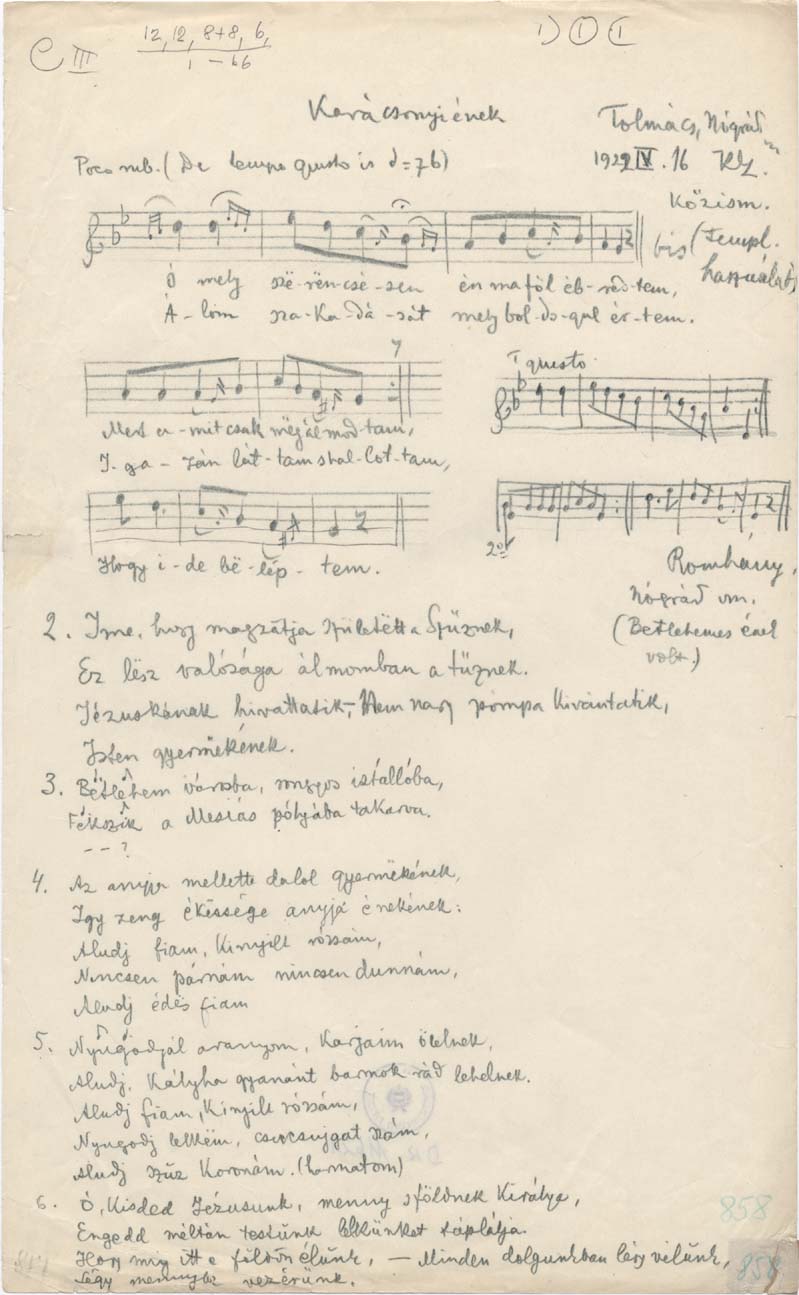 C III
12, 12, 8+8, 6,
1 – 66
Karácsonyi ének
Tolmács, Nógrád
1922 IV. 16 KZ.
Poco rub. (De tempo giusto is d=76)
Közism.
(templ.
használat)
bis
Ó mely szë-rën-csé-sen én ma föl éb-red-tem,
Á-lom sza-ka-dá-sát mely bol-do-gul ér-tem.
7
T giusto
Mert a-mit csak mëgálmod-tam,
I-ga-zán lát-tam s hal-lot-tam,
Hogy i-de bë-lép-tem.
2º
Romhány,
Nógrád vm.
(Betlehemes ének
volt.)
2. Ime, hogy magzatja születëtt a Szűznek,
Ez lësz valósága álmomban a tűznek.
Jézuskának hivattatik, – Nem nagy pompa kivántatik,
Isten gyermëkének.
3. Bëtlehem városba, rongyos istállóba,
Fekszik a Mesiás pólyába takarva.
– – ?
4. Az anyja mellette dalol gyermëkének,
Igy zeng ékëssége anyja énekének:
Aludj fiam, kinyilt rózsám,
Nincsen párnám nincsen dunnám,
Aludj édës fiam
5. Nyugodjál aranyom, karjaim ölelnek,
Aludj, kályha gyanánt barmok rád lehelnek.
Aludj fiam, kinyilt rózsám,
Nyugodj lelkëm, csucsujgat szám,
Aludj szűz koronám. (harmatom)
6. Ó, kisded Jézusunk, menny s földnek királya,
Engedd méltán testünk lelkünket táplálja.
Hogy mig itt e földön élünk, – Minden dolgunkban légy vélünk,
Légy mennybe vezérünk.
858
858